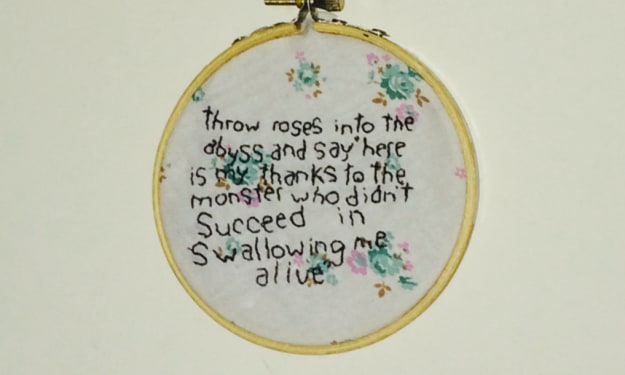 throw roses into the
abyss and say "here
is my thanks to the
monster who didn't
Succeed in
Swallowing me
alive"